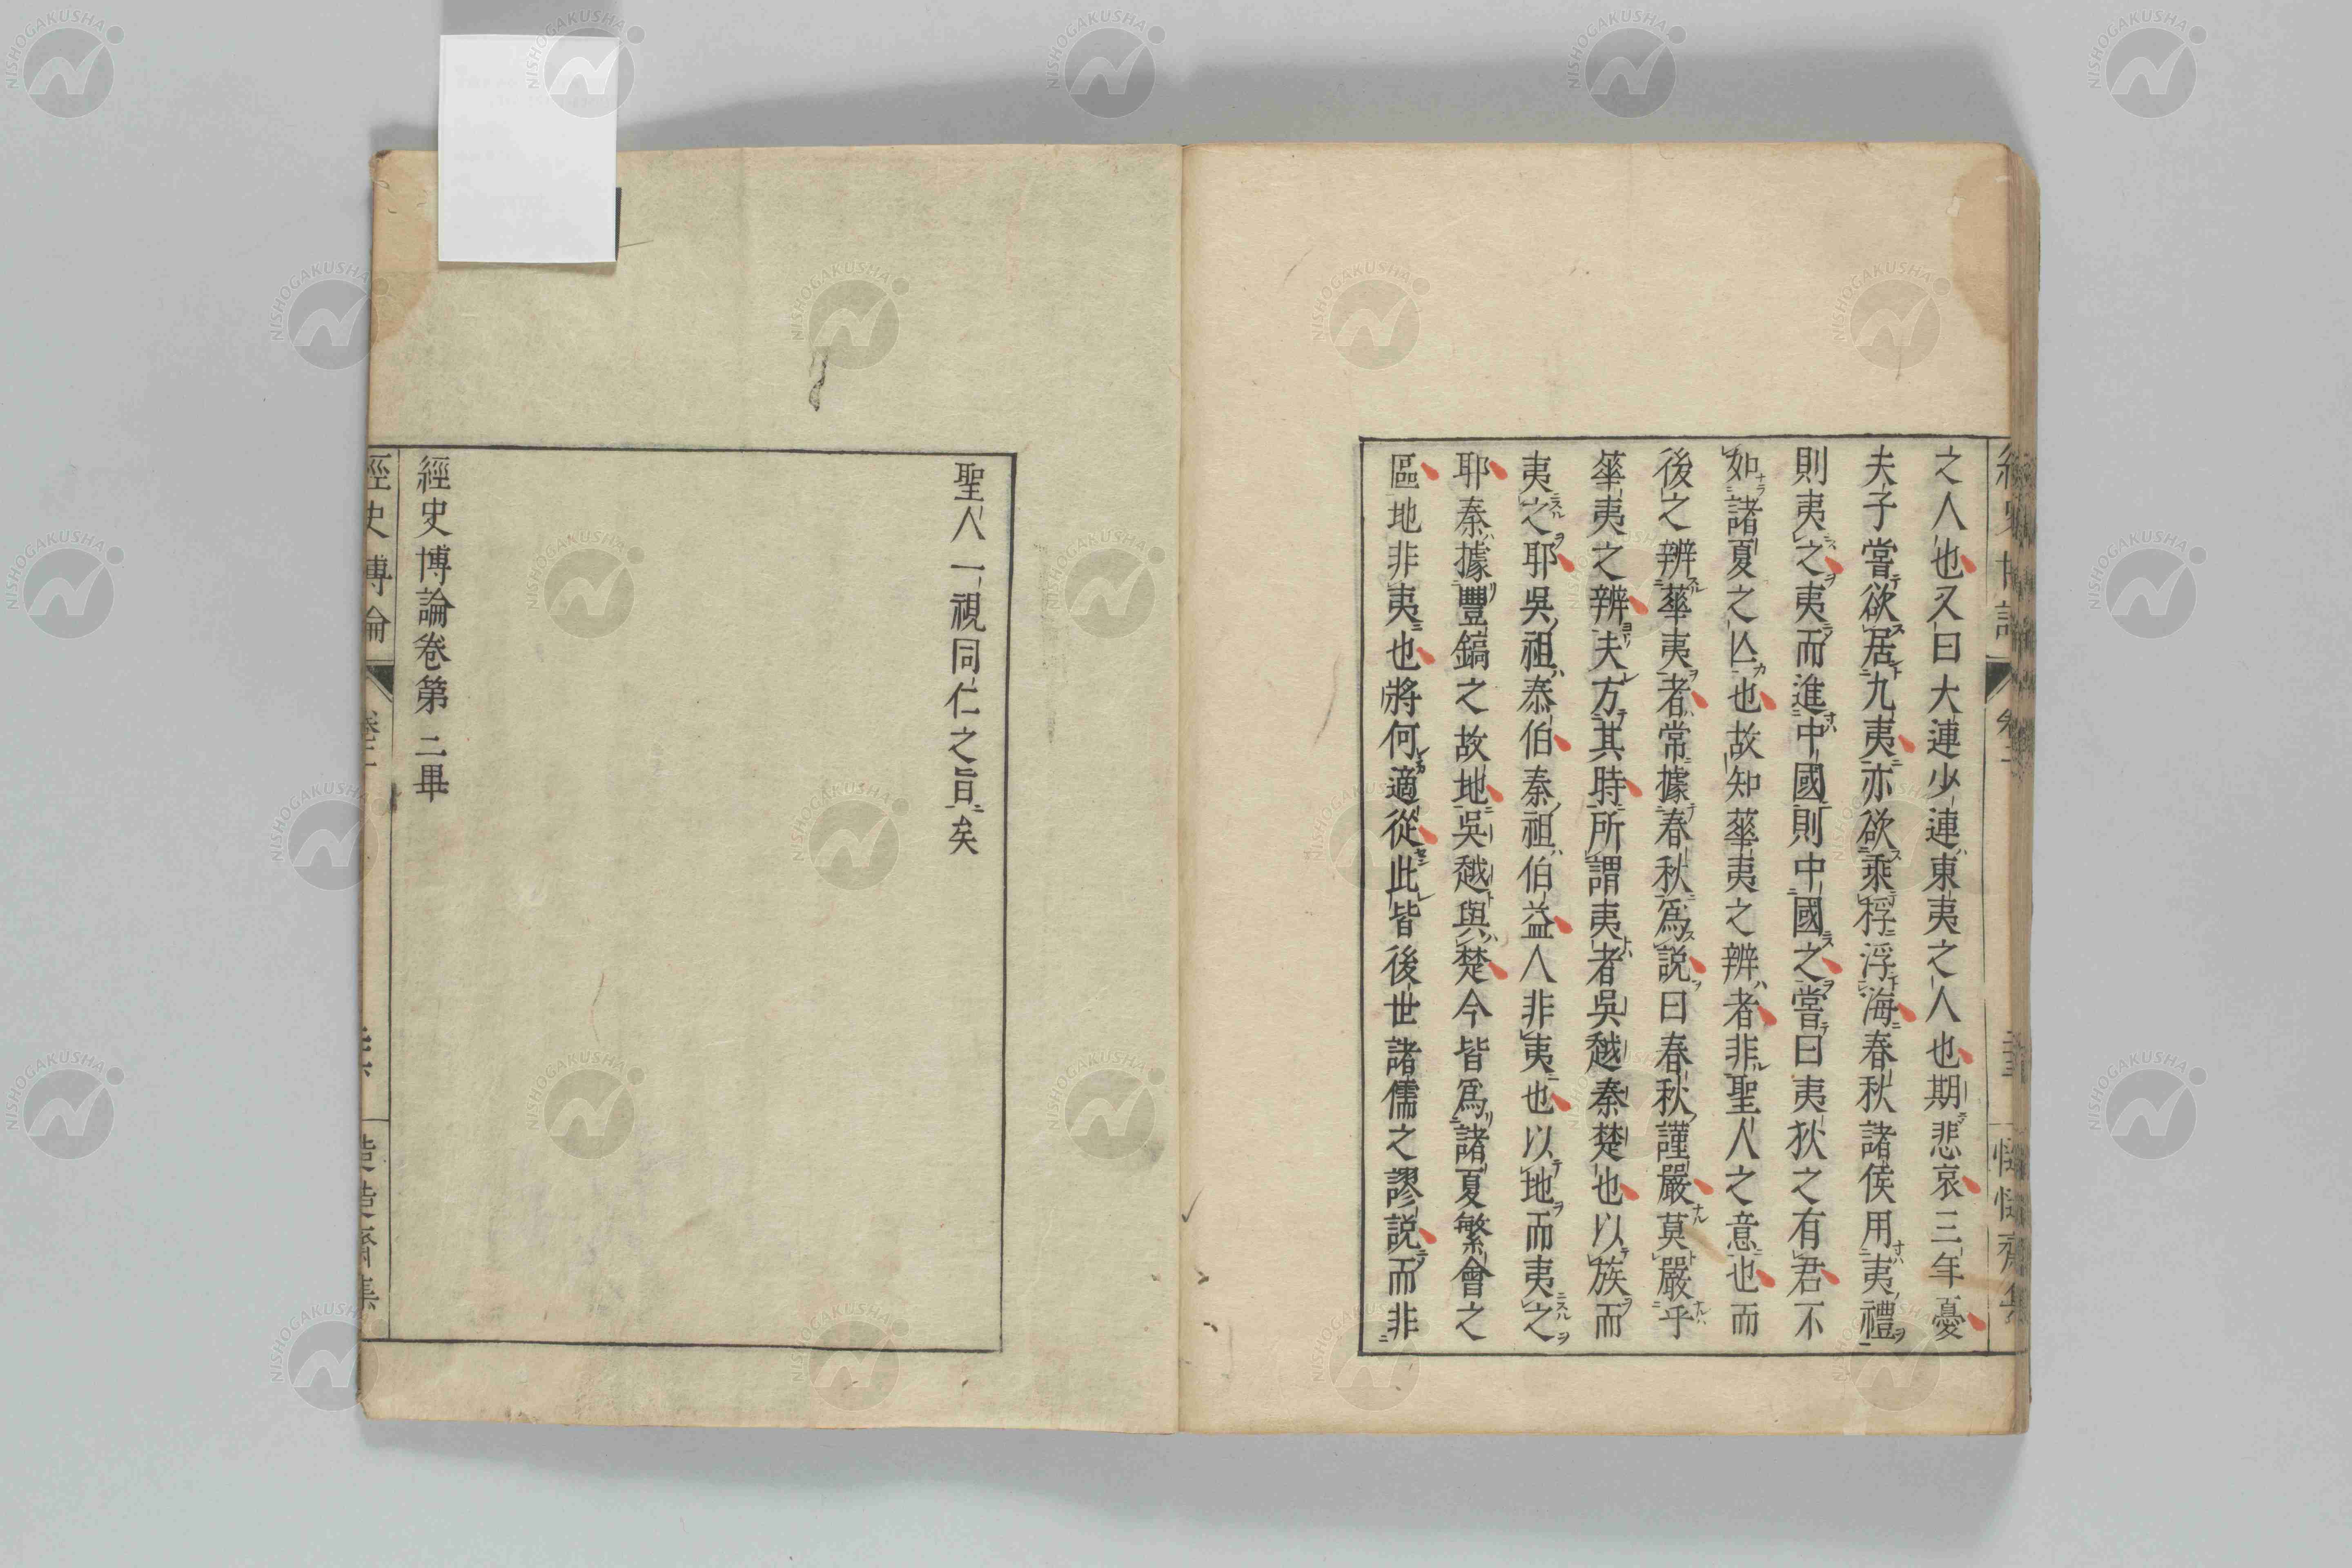 之人也又曰大連少連東夷之人也期悲哀三年憂
夫子嘗欲居九夷亦欲乘桴浮海春秋諸侯用夷禮
則夷之夷而進中國則中國之嘗曰夷狄之有君不
如諸夏之亾也故知華夷之辨者非聖人之意也而
後之辨華夷者常據春秋爲説曰春秋謹嚴莫嚴乎
華夷之辨夫方其時所謂夷者吳越秦楚也以族而
夷之耶吳祖泰伯秦祖伯益人非夷也以地而夷之
耶秦據豐鎬之故地吳越與楚今皆爲諸夏繁會之
區地非夷也將何適從此皆後世諸儒之謬説而非
聖人一視同仁之旨矣
經史博論卷第二畢
經史博論
NISHOGAKUSHA